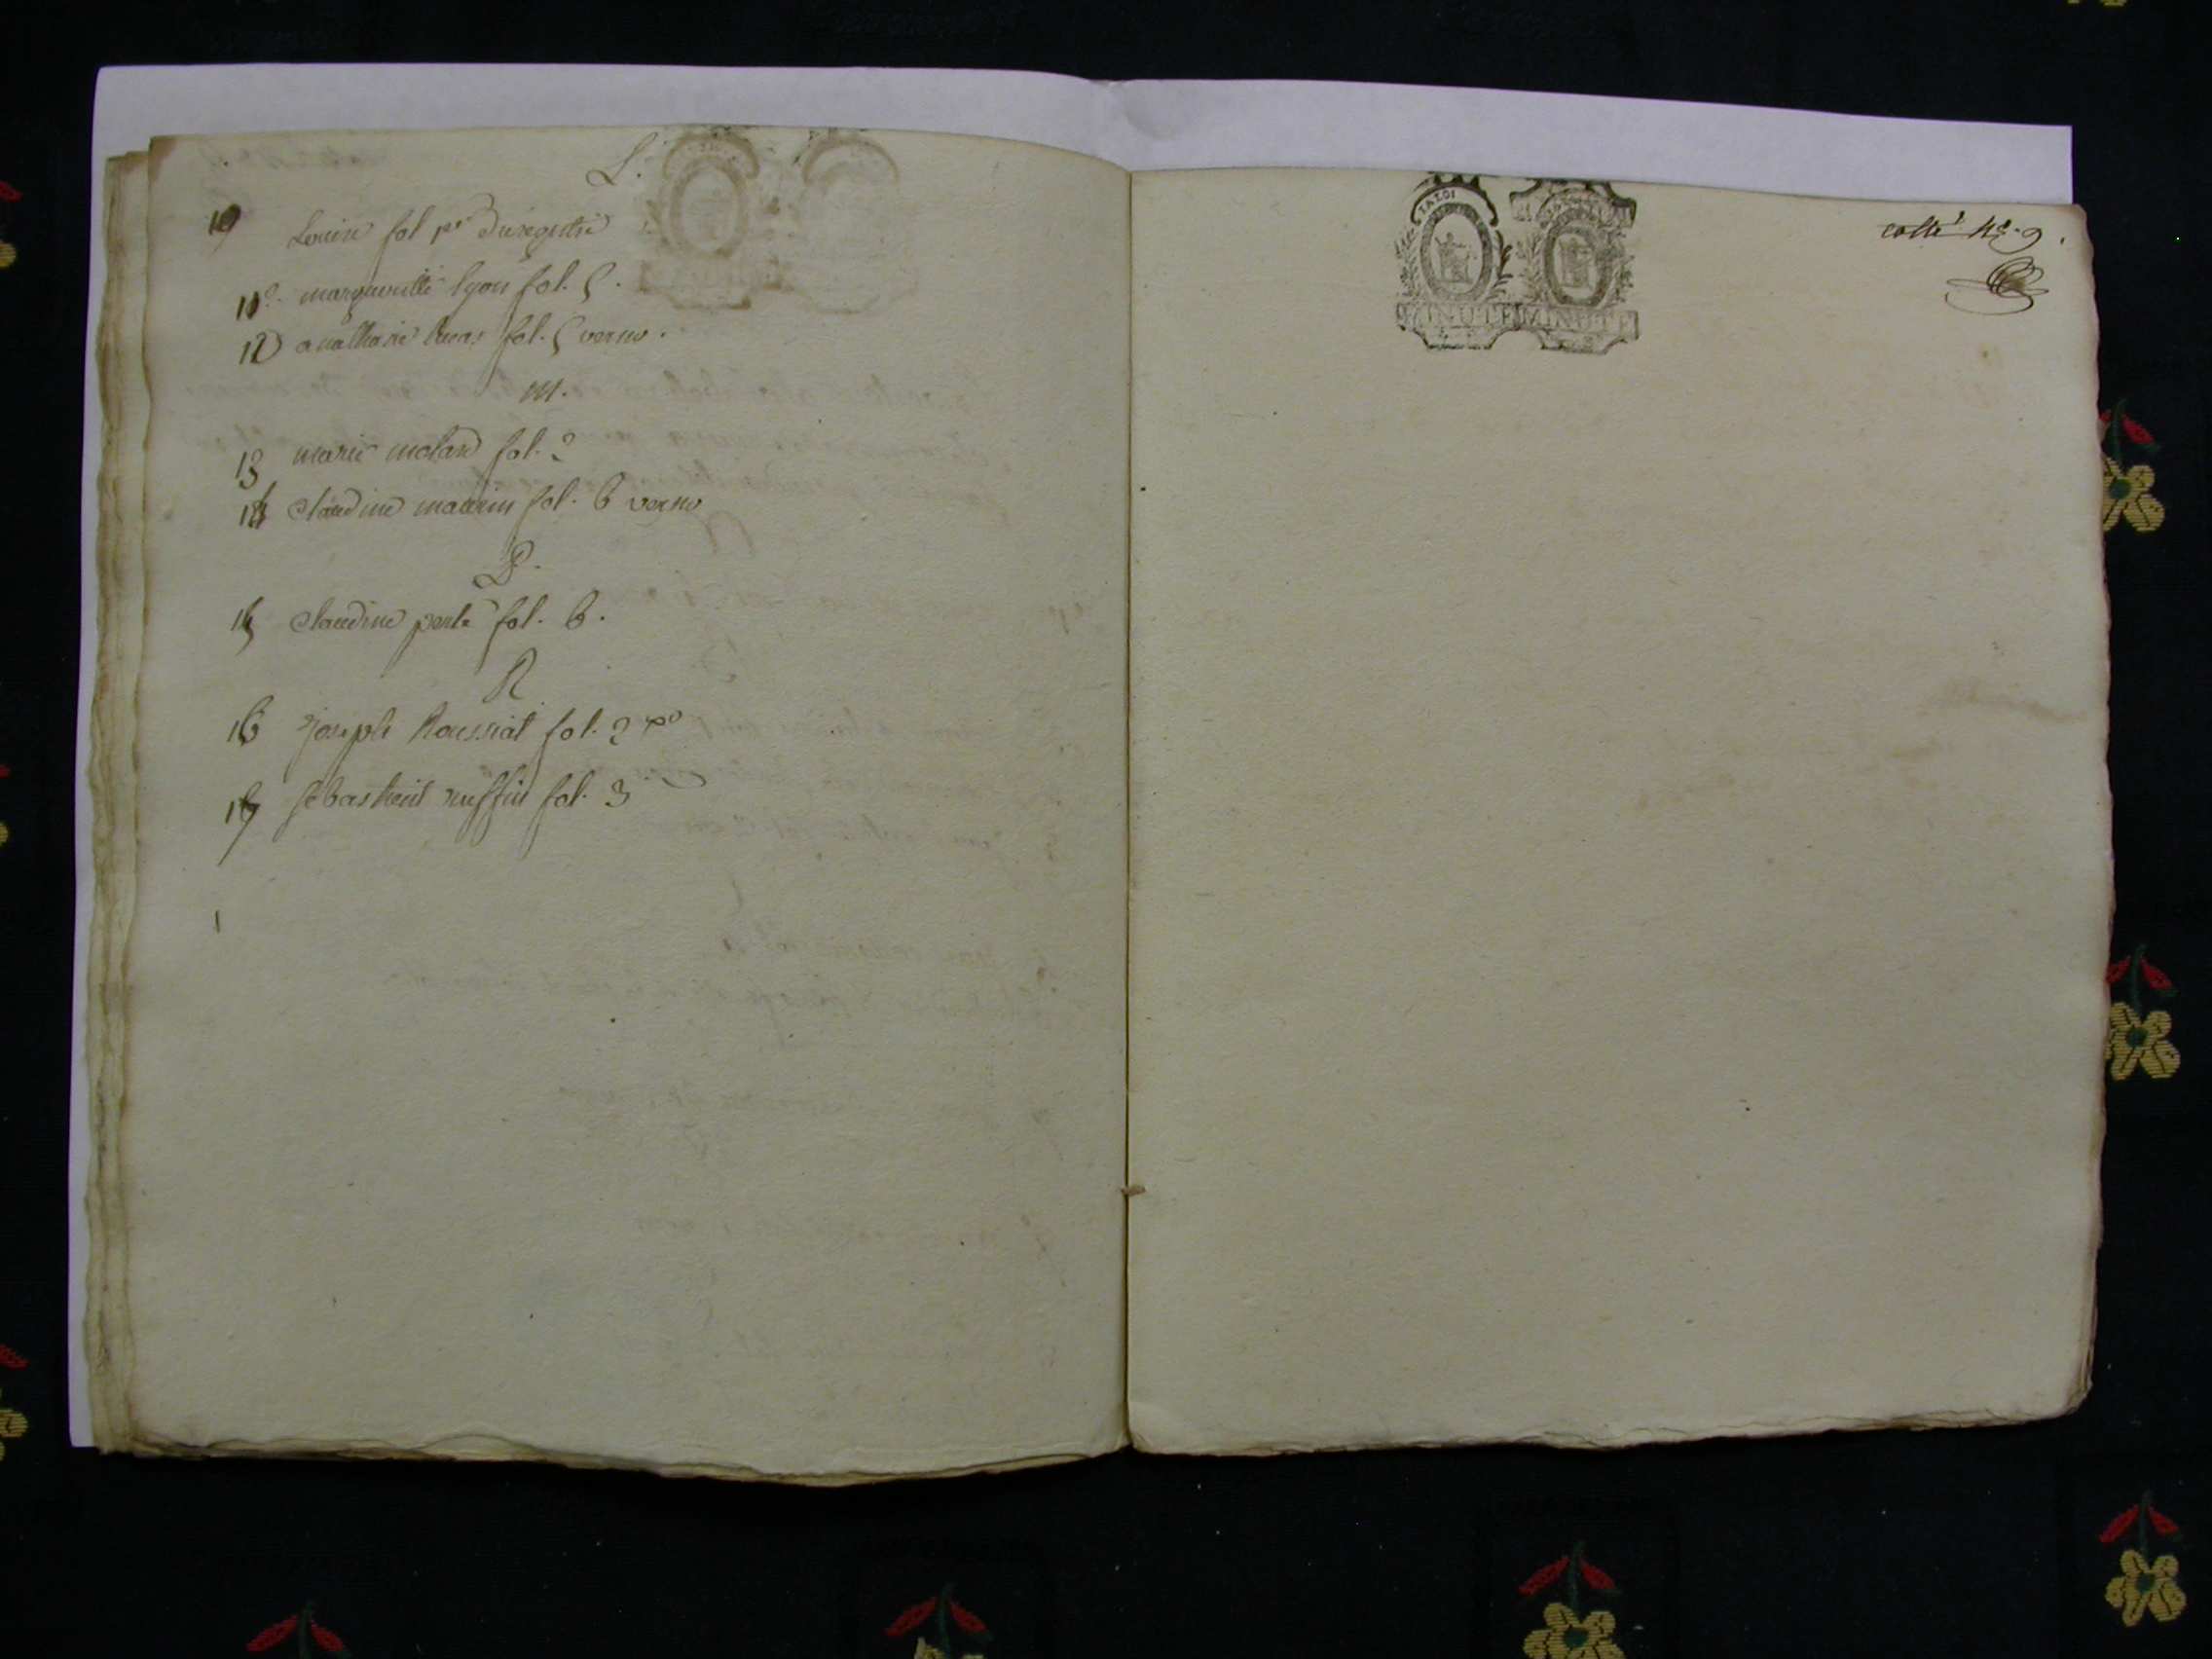 L.
Louise fol 1er du registre
11e. margueritte lyon fol. 5.
12 anathasie lucas fol. 5 verso.
M.
13 marie molard fol. 2
14 Claudine maurin fol. 6 verso
P.
15 Claudine perte fol. 6.
R
16 joseph Roussiat fol. 2 vo
17 sebastient ruffin fol. 3
cotté ne. 9.
MINUTE MINUTE